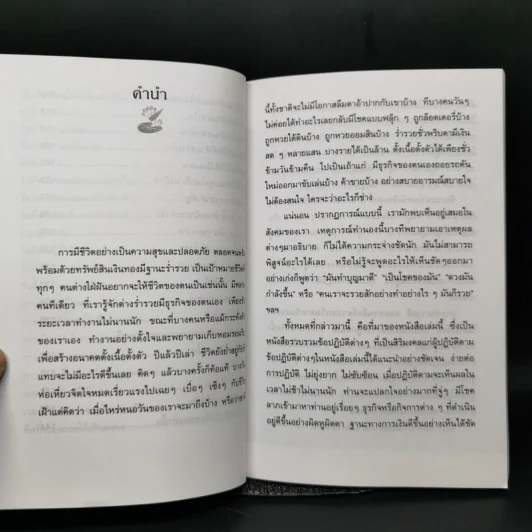 คำนำ
การมีชีวิตอย่างเป็นความสุขและปลอดภัย ตลอดจน
พร้อมด้วยทรัพย์สินเงินทองมีฐานะร่ำรวย เป็นเป้าหมายชีวิต
ทุกๆ คนต่างใฝ่ฝันอยากจะให้ชีวิตของตนเป็นเช่นนั้น มี
คนทีเดียว ที่เรารู้จักต่างร่ำรวยมีธุรกิจของตนเอง
ระยะเวลาทำงานไม่นานนัก ขณะที่บางคนหรือแม้กระทั่ง
ของเราเอง ทำงานอย่างตั้งใจและพยายามเก็บหอมรอมริบ
เพื่อสร้างอนาคตตั้งเนื้อตั้งตัว ปีแล้วปีเล่า ชีวิตยังย่ำอยู่กับที่
แทบจะไม่มีอะไรดีขึ้นเลย คิดๆ แล้วบางครั้งก็ท้อแท้
ห่อเหี่ยวจิตใจหมดเรี่ยวแรงไปเฉยๆ เบื่อๆ เซ็งๆ กับชีวิต
เฝ้าแต่คิดว่า เมื่อไหร่หนอวันของเราจะมาถึงบ้าง หรือว่า
นี้ทั้งชาติจะไม่มีโอกาสลืมตาอ้าปากกับเขาบ้าง ทีบางคนวันๆ
ไม่ค่อยได้ทำอะไรเลยกลับมีโชคแบบฟลุ๊ก ๆ ถูกล๊อตเตอรี่บ้าง
ถูกหวยใต้ดินบ้าง ถูกหวยออมสินบ้าง ร่ำรวยชั่วพริบตามีเงิน
สด ๆ หลายแสน บางรายได้เป็นล้าน ตั้งเนื้อตั้งตัวได้เพียงชั่ว
ข้ามวันข้ามคืน ไปเป็นเถ้าแก่ มีธุรกิจของตนเองถอยรถคัน
ใหม่ออกมาขับเล่นบ้าง ค้าขายบ้าง อย่างสบายอารมณ์สบายใจ
ไม่ต้องสนใจ ใครจะว่าอะไรก็ช่าง
แน่นอน ปรากฏการณ์แบบนี้ เรามักพบเห็นอยู่เสมอใน
สังคมของเรา เหตุการณ์ทำนองนี้บางทีพยายามเอาเหตุผล
ต่างๆมาอธิบาย ก็ไม่ได้ความกระจ่างชัดนัก มันไม่สามารถ
พิสูจน์อะไรได้เลย หรือไม่รู้จะพูดอะไรให้เห็นชัดๆออกมา
อย่างเก่งก็พูดว่า "มันทำบุญมาดี" "เป็นโชคของมัน" "ดวงมัน
กำลังขึ้น" หรือ "คนเราจะรวยสักอย่างทำอย่างไร ๆ มันก็รวย"
ฯลฯ
ทั้งหมดที่กล่าวมานี้ คือที่มาของหนังสือเล่มนี้ ซึ่งเป็น
หนังสือรวบรวมข้อปฏิบัติต่างๆ ที่เป็นสิริมงคลแก่ผู้ปฏิบัติตาม
ข้อปฏิบัติต่างๆในหนังสือเล่มนี้ได้แนะนำอย่างชัดเจน ง่ายต่อ
การปฏิบัติ ไม่ยุ่งยาก ไม่ซับซ้อน เมื่อปฏิบัติตามจะเห็นผลใน
เวลาไม่ช้าไม่นานนัก ท่านจะแปลกใจอย่างมากที่จู่ๆ มีโชค
ลาภเข้ามาหาท่านอยู่เรื่อยๆ ธุรกิจหรือกิจการต่าง ๆ ที่ดำเนิน
อยู่ดีขึ้นอย่างผิดหูผิดตา ฐานะทางการเงินดีขึ้นอย่างเห็นได้ชัด